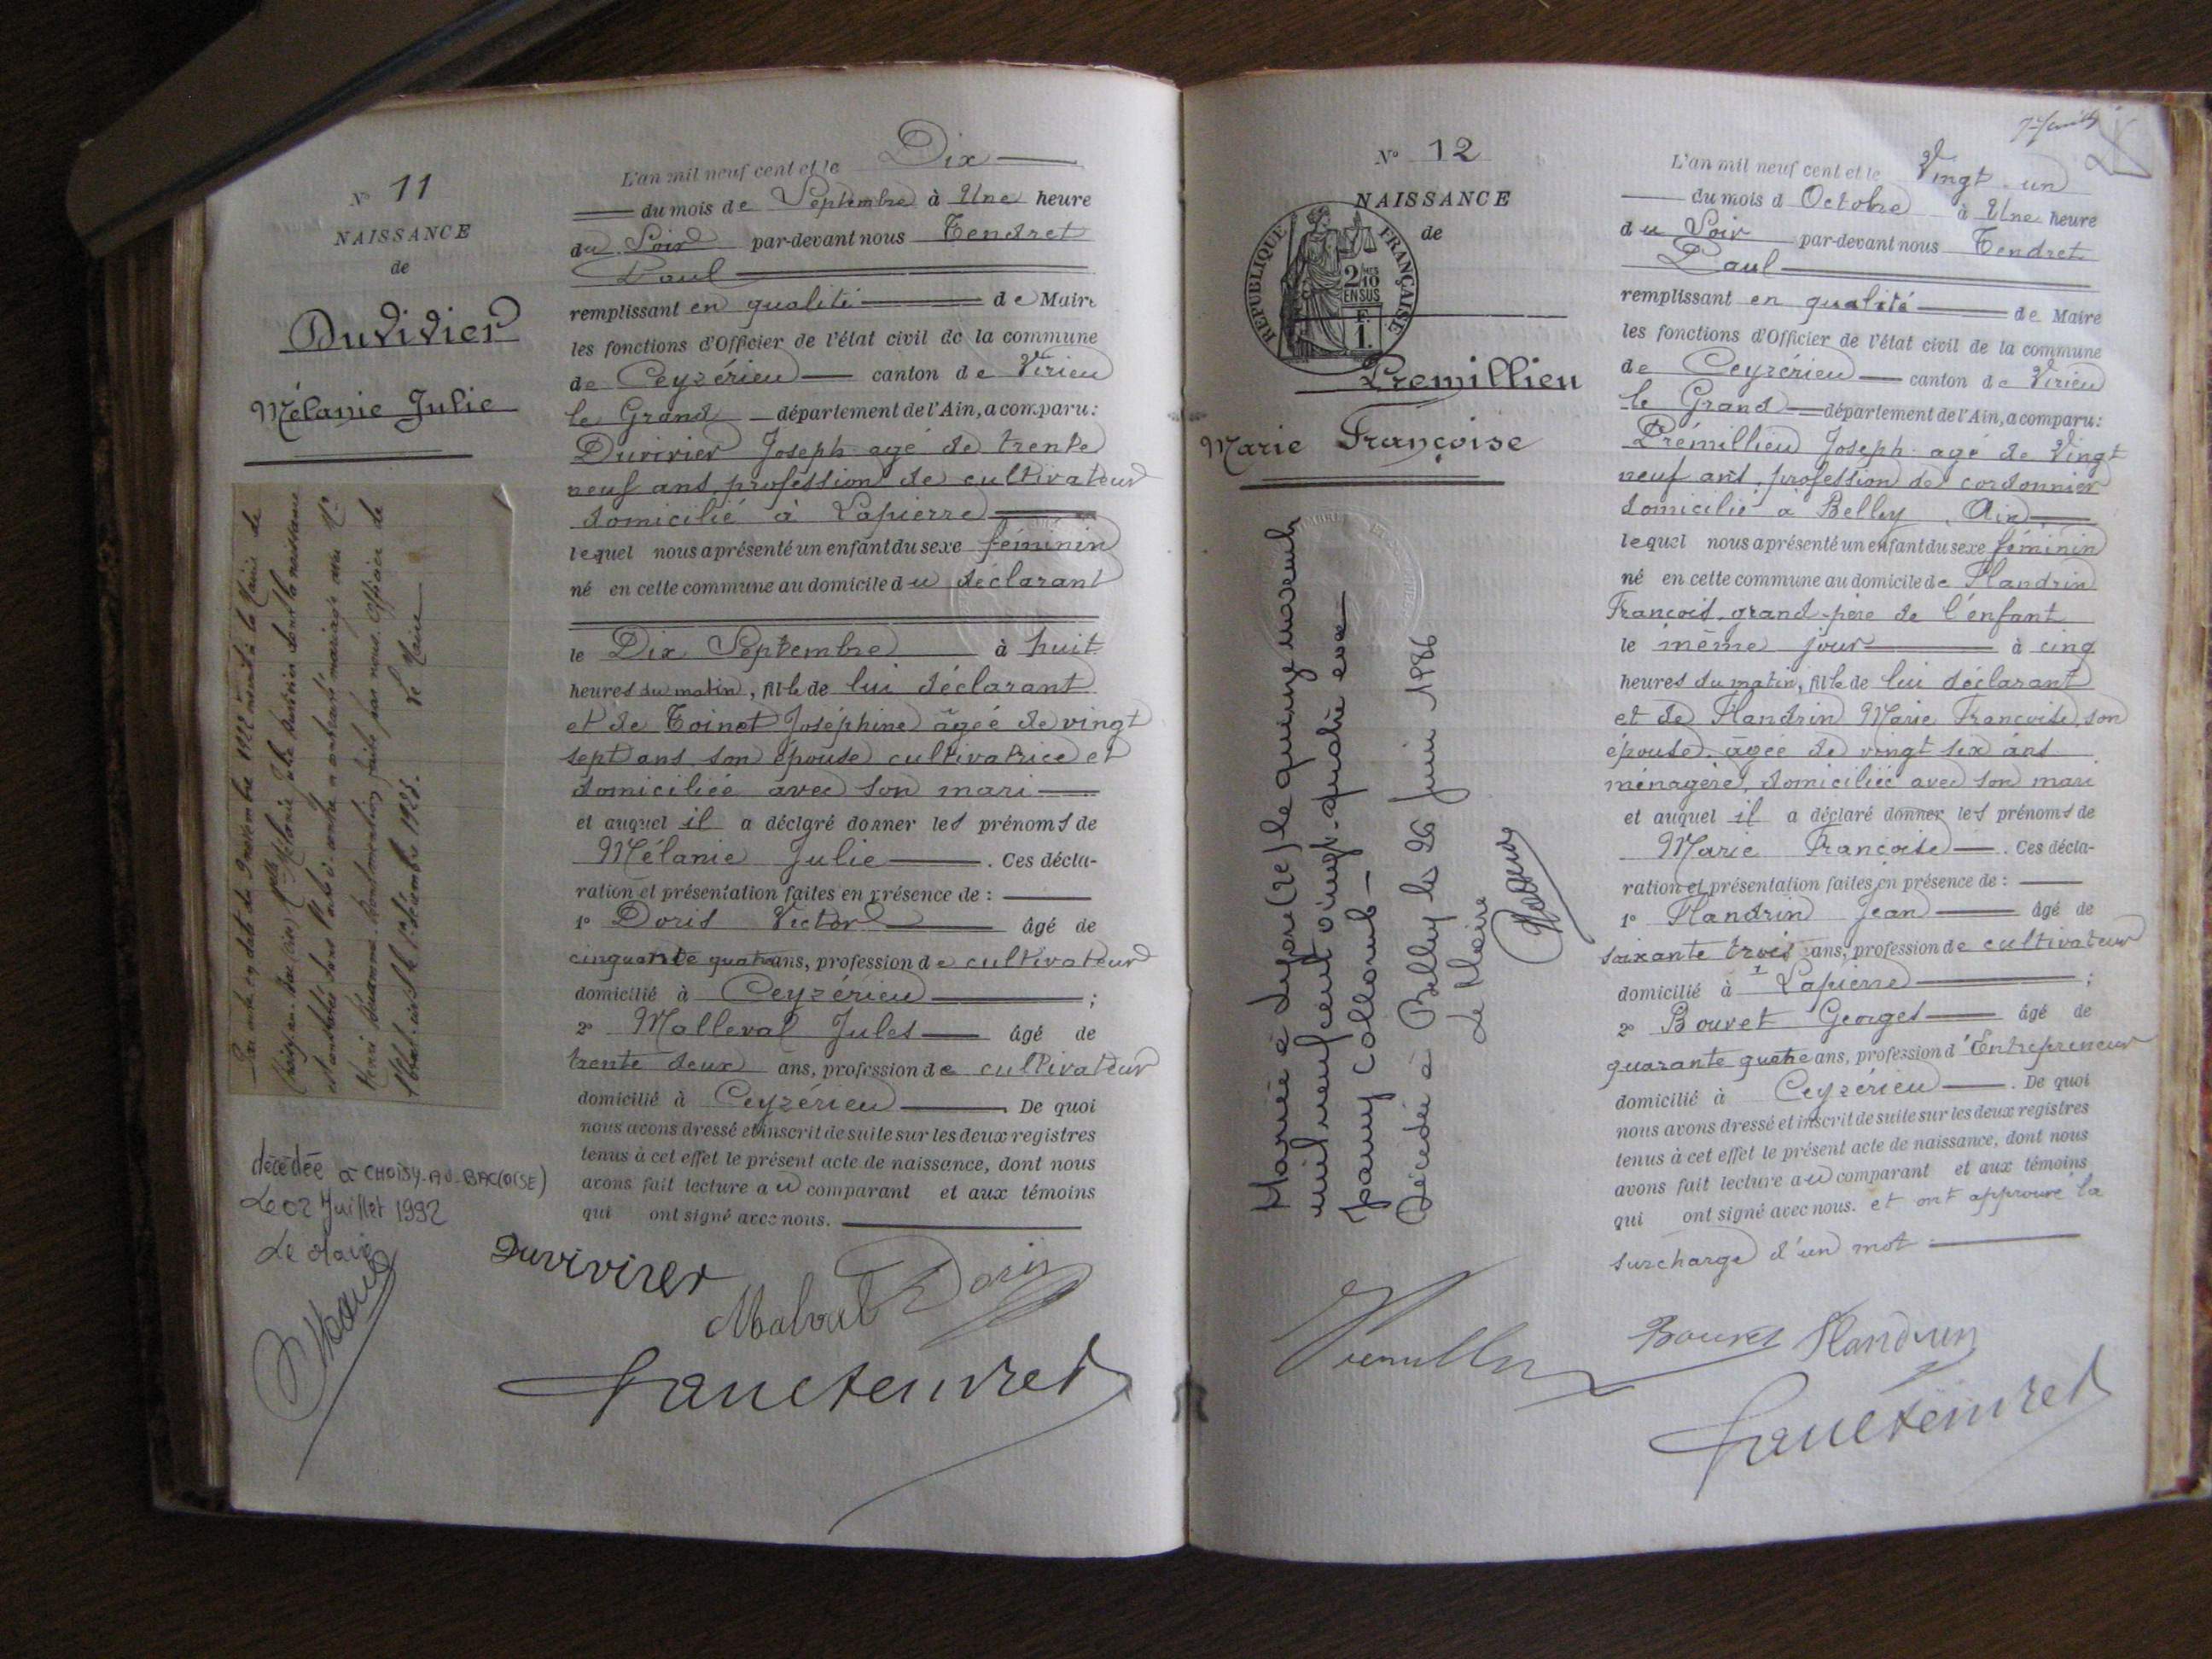 N° 11
NAISSANCE
de
Duvivier
Mélanie Julie
L'an mil neuf cent et le Dix
du mois de Septembre à Une heure
du Soir par-devant nous Tendret
Paul
remplissant en qualité de Maire
les fonctions d'Officier de l'état civil de la commune
de Ceyzérieu canton de Virieu
le Grand département de l'Ain, a comparu:
Duvivier Joseph agé de trente
neuf ans, profession de cultivateur
domicilié à Lapierre
lequel nous a présenté un enfant du sexe féminin
né en cette commune au domicile du déclarant
le Dix Septembre à huit
heures du matin, fille de lui déclarant
et de Toinet Joséphine âgée de vingt
sept ans, son épouse cultivatrice et
domiciliée avec son mari
et auquel il a déclaré donner les prénoms de
Mélanie Julie. Ces décla-
ration et présentation faites en présence de :
1° Doris Victor âgé de
cinquante quatre ans, profession de cultivateur
domicilié à Ceyzérieu ;
2° Malleval Jules âgé de
trente deux ans, profession de cultivateur
domicilié à Ceyzérieu De quoi
nous avons dressé et inscrit de suite sur les deux registres
tenus à cet effet le présent acte de naissance, dont nous
avons fait lecture au comparant et aux témoins
qui ont signé avec nous.
Par acte en date du 9 novembre 1922 à la Mairie de
Choisy-au-Bac Mélanie Julie Duvivier dont la naissance
est constatée dans l'acte ci-contre a contracté mariage avec Mr
Henri
décembre 1925. Le Maire
décédée à CHOISY-AU-BAC (OISE)
Le 02 Juillet 1992
Le Maire
Duvivier
Doris
N° 12
NAISSANCE
de
REPUBLIQUE FRANÇAISE
2/10 EN SUS
F.
1.
Premillieu
Marie Françoise
Mariée à le quinze
mil neuf cent vingt-quatre avec
Décédée à Belley le 26 juin 1986
Le Maire
L'an mil neuf cent et le Vingt un
du mois d Octobre à Une heure
du Soir par-devant nous Tendret
Paul
remplissant en qualité de Maire
les fonctions d'Officier de l'état civil de la commune
de Ceyzérieu canton de Virieu
le Grand département de l'Ain, a comparu:
Prémillieu Joseph agé de Vingt
neuf ans, profession de cordonnier
domicilié à Belley, Ain
lequel nous a présenté un enfant du sexe féminin
né en cette commune au domicile de Flandrin
François, grand-père de l'enfant
le même jour à cinq
heures du matin, fille de lui déclarant
et de Flandrin Marie Françoise, son
épouse, âgée de vingt six ans
ménagère, domiciliée avec son mari
et auquel il a déclaré donner les prénoms de
Marie Françoise. Ces décla-
ration et présentation faites en présence de :
1° Flandrin Jean âgé de
soixante trois ans, profession de cultivateur
domicilié à Lapierre ;
2° Bouvet Georges âgé de
quarante quatre ans, profession d'Entrepreneur
domicilié à Ceyzérieu. De quoi
nous avons dressé et inscrit de suite sur les deux registres
tenus à cet effet le présent acte de naissance, dont nous
avons fait lecture au comparant et aux témoins
qui ont signé avec nous. et ont approuvé la
surcharge d'un mot.
Bouvet Flandrin